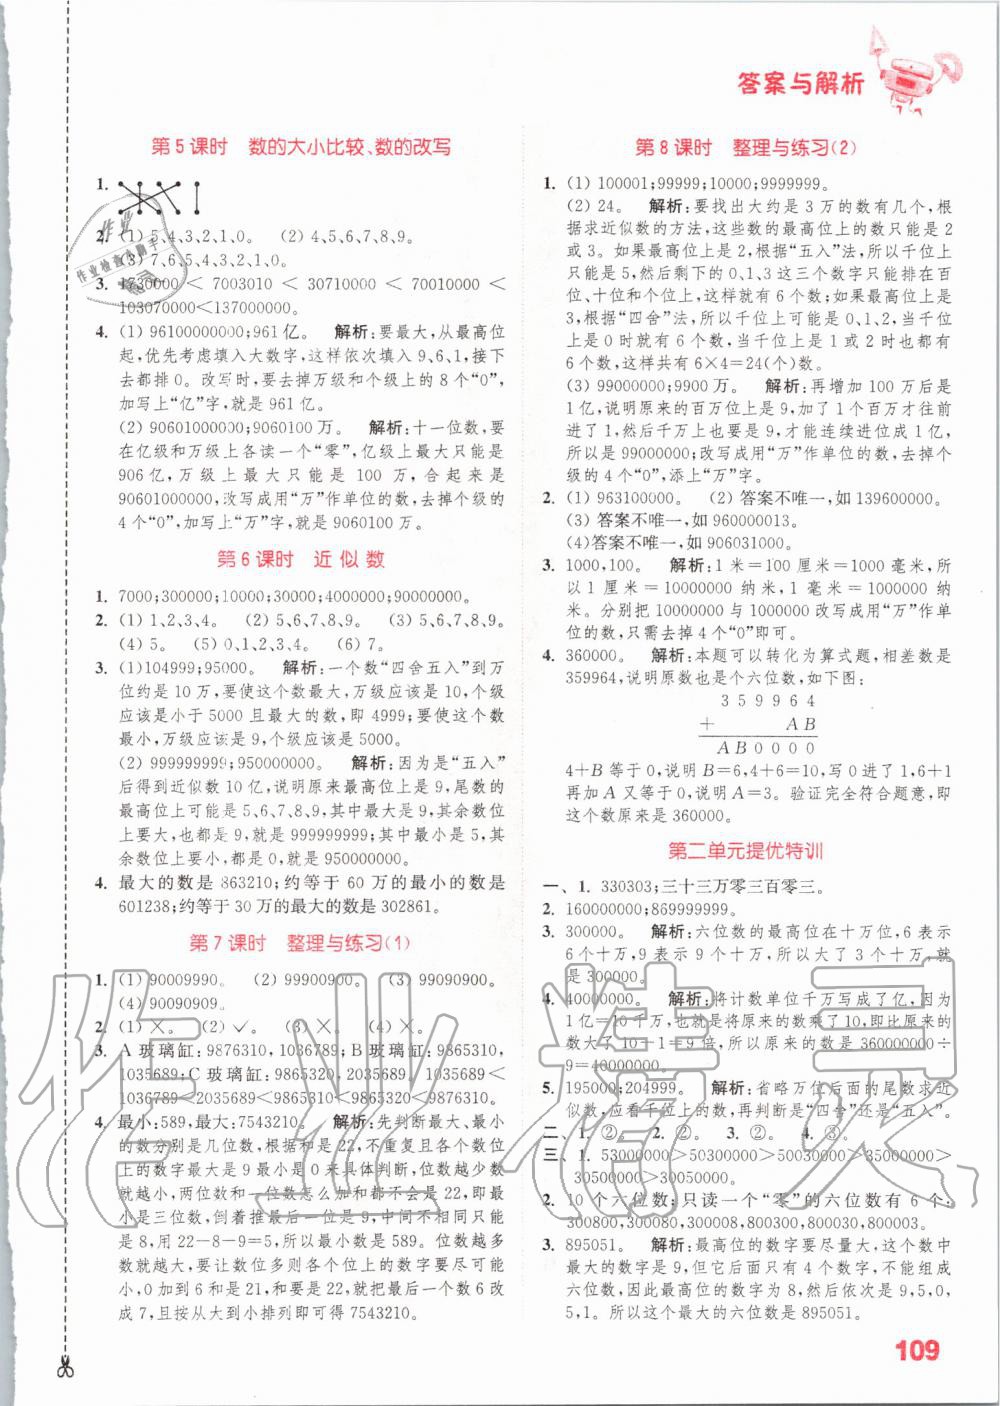 答案与解析
第5课时 数的大小比较、数的改写
1.
2. (1) 5,4,3,2,1,0。 (2) 4,5,6,7,8,9。
(3) 7,6,5,4,3,2,1,0。
3. 1730000 < 7003010 < 30710000 < 70010000 <
103070000<137000000。
4. (1) 96100000000;961亿。 解析:要最大,从最高位
起,优先考虑填入大数字,这样依次填入9、6、1,接下
去都排0。改写时,要去掉万级和个级的8个“0”,
加写上“亿”字,就是961亿。
(2) 90601000000;9060100万。 解析:十一位数,要
在亿级和万级上各读一个“零”,亿级上最大只能是
906亿,万级上最大只能是100万,合起来是
90601000000,改写成用“万”作单位的数,去掉个级的
4个“0”,加写上“万”字,就是9060100万。
第6课时 近似数
1. 7000;300000;10000;30000;4000000;90000000。
2. (1) 1、2、3、4。 (2) 5、6、7、8、9。 (3) 5、6、7、8、9。
(4) 5。 (5) 0、1、2、3、4。 (6) 7。
3. (1)104999;95000。 解析:一个数“四舍五入”到万
位约是10万,要使这个数最大,万级应该是10,个级
应该是小于5000且最大的数,即4999;要使这个数
最小,万级应该是9,个级应该是5000。
(2) 999999999;950000000。 解析:因为是“五入”
后得到近似数10亿,说明原来最高位上是9,尾数的
最高位上可能是5、6、7、8、9,其中最大是9,其余数位
上要大,也都是9,就是999999999;其中最小是5,其
余数位上要小,都是0,就是950000000。
4. 最大的数是863210;约等于60万的最小的数是
601238;约等于30万的最大的数是302861。
第7课时 整理与练习(1)
1. (1) 90009990。 (2) 99900900。 (3) 99090900。
(4) 90090909。
2. (1) ×。 (2) ✓。 (3) ×。 (4) ×。
3. A玻璃缸:9876310,1036789;B玻璃缸:9865310,
1035689;C玻璃缸:9865320,2035689;1035689<
1036789<2035689<9865310<9865320<9876310。
4. 最小:589,最大:7543210。 解析:先判断最大、最小
的数分别是几位数,根据和是22,不重复且各个数位
上的数字最大是9最小是0来具体判断,位数越少数
就越小,两位数和一位数怎么加和都不会是22,即最
小是三位数,倒着推最后一位是9,中间不相同只能是
8,用22-8-9=5,所以最小的数是589。位数越多
数就越大,要让数位多则各个位上的数字都要尽可能
小,0加到6和是21,和要是22,就把最后一个数6改
成7,且按从大到小排列即可得7543210。
第8课时 整理与练习(2)
1. (1) 100001;99999;10000;9999999。
(2) 24。 解析:要找出大约是3万的数有几个,根
据求近似数的方法,这些数的最高位上的数只能是2
或3。如果最高位上是2,根据“五入”法,所以千位上
只能是5,然后剩下的0、1、3这三个数字只能排在百
位、十位和个位上,这样就有6个数;如果最高位上是
3,根据“四舍”法,所以千位上可能是0、1、2,当千位
上是0时就有6个数,当千位上是1或2时,也都有
6个数,这样共有6×4=24(个)数。
(3) 99000000;9900万。 解析:再增加100万后是
1亿,说明原来的百万位上是9,加了1个百万才往前
进1,然后千万上也要是9,才能连续进位成1亿,
所以是99000000;改写成用“万”作单位的数,去掉个级的
4个“0”,添上“万”字。
2. (1) 963100000。 (2) 答案不唯一,如139600000。
(3) 答案不唯一,如960000013。
(4)答案不唯一,如906031000。
3. 1000,100。 解析:1米=100厘米=1000毫米,所
以1厘米=10000000纳米,1毫米=1000000纳
米。分别把10000000与1000000改写成用“万”作单
位的数,只需去掉4个“0”即可。
4. 360000。 解析:本题可以转化为算式题,相差数是
359964,说明原数也是个六位数,如下图:
359964
+ AB
AB0000
4+B等于0,说明B=6,4+6=10,写0进了1,6+1
再加A又等于0,说明A=3。验证完全符合题意,即
这个数原来是360000。
第二单元提优特训
一、1. 330303;三十三万零三百零三。
2. 160000000;869999999。
3. 300000。 解析:六位数的最高位在十万位,6表示
6个十万,9表示9个十万,所以相差3个十万,就
是300000。
4. 40000000。 解析:将计数单位千万写成了亿,因为
1亿=10千万,也就是将原来的数乘了10,即比原来的
数大了10-1=9倍,所以原来的数是360000000÷
9=40000000。
5. 195000;204999。 解析:省略万位后面的尾数求近
似数,应看千位上的数,再判断是“四舍”还是“五入”。
二、1. ②。 2. ②。 3. ②。 4. ③。
三、1. 53000000>50300000>50030000>35000000>
30500000>30050000。
2. 10个六位数;只读一个“零”的六位数有6个:
300800,300080,300008,800300,800030,800003。
3. 895051。 解析:最高位的数字要尽量大,这个数中最
大的数字是9,但它后面只有4个数字,不能组成
六位数,因此最高位的数字为8,然后依次是9,5,0,
5,1。所以这个最大的六位数是895051。
109